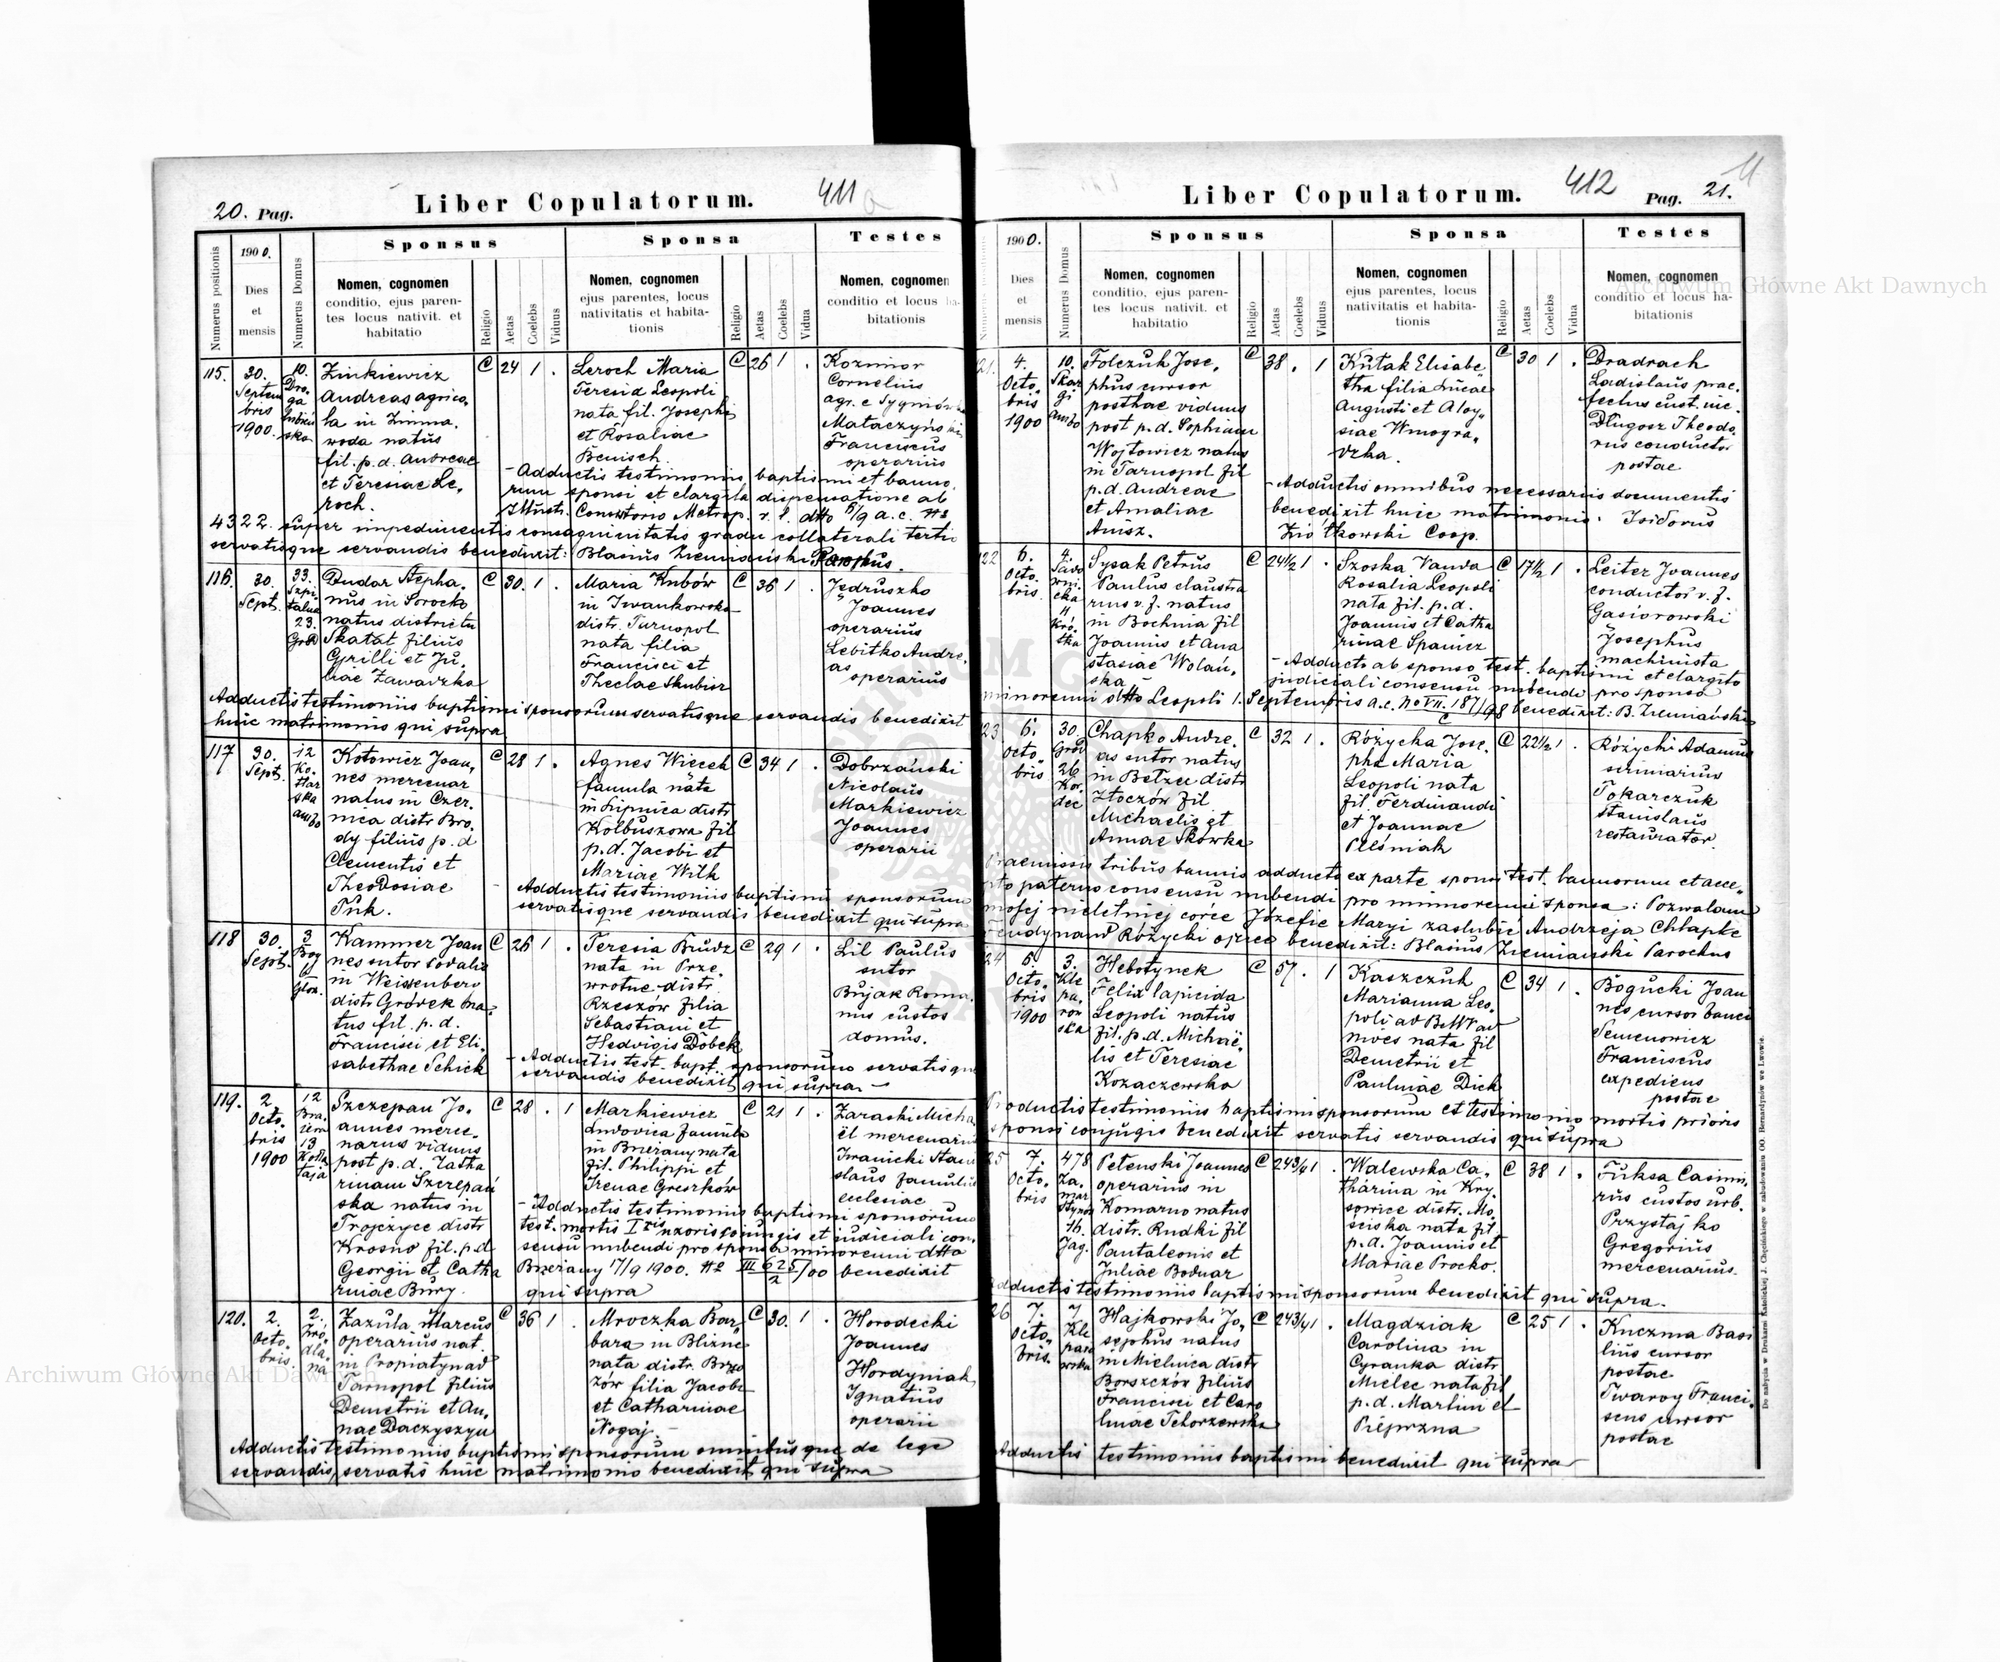 20. Pag.
Liber Copulatorum.
411
Numerus positionis
1900.
Dies
et
mensis
Numerus Domus
Sponsus
Nomen, cognomen
conditio, ejus paren-
tes locus nativit. et
habitatio
Religio
Aetas
Coelebs
Viduus
Sponsa
Nomen, cognomen
ejus parentes, locus
nativitatis et habita-
tionis
Religio
Aetas
Coelebs
Vidua
Testes
Nomen, cognomen
conditio et locus ha-
bitationis
115.
30.
Septem
bris
1900.
10.
Dro-
ga
Zinkiewicz
Andreas agrico-
la in Zimna.
woda natus
fil. p.d. Andreae
et Teresiae Le,
roch.
C
24
1
.
Leroch Maria
Teresia Leopoli
nata fil. Josephi
et Rosaliae
Benisch.
C
26
1
.
Kozmior
Cornelius
agr. e
Mataczyński
Franciscus
operarius
- Adductis testimoniis baptismi et banno,
rum sponsi et elargita dispensatione ab
Illustr. Consistorio Metrop. r. l. dtto 5/9 a.c. No
4322. super impedimentis consaguinitatis gradu collaterali tertii
servatisque servandis benedixit: Blasius Ziemiański Parochus.
116.
30.
Sept.
33.
Szpi-
talna
23.
Gród
Dudar Stepha,
nus in Sorocko
natus districtu
Skałat filius
Cyrilli et Ju,
liae Zawadzka
C
30.
1
.
Maria Kubów
in Iwankowska
distr. Tarnopol
nata filia
Francisci et
Theclae Skubisz
C
36
1
.
Jędruszko
Joannes
operarius
Lebitko Andre,
as
operarius
Adductis testimoniis baptismi sponsorum servatisque servandis benedixit
huic matrimonio qui supra
117
30.
Sept.
12
Ko-
tlar
ska
ambo
Kotowicz Joan,
nes mercenar
natus in Czer-
nica distr. Bro,
dy filius p.d
Clementis et
Theodosiae
Tuk.
C
28
1
.
Agnes Więcek
famula nata
in Lipnica distr.
Kolbuszowa fil
p.d. Jacobi et
Mariae Wilk
C
34
1
.
Dobrzański
Nicolaus
Markiewicz
Joannes
operarii
- Adductis testimoniis baptismi sponsorum
servatisque servandis benedixit qui supra
118
30.
Sept.
3
Kammer Joan
nes sutor sodalis
in Weissenberg
distr. Gródek na,
tus fil. p.d.
Francisci et Eli,
sabethae Schick
C
26
1
.
Teresia Brudz
nata in Prze,
wrotne distr.
Rzeszów filia
Sebastiani et
Hedvigis Dobek
C
29
1
.
Lil Paulus
sutor
Bujak Roma,
nus custos
domus.
- Adductis test. bapt. sponsorum servatisque
servandis benedixit qui supra -
119.
2.
Octo-
bris
1900
12
13
Kołła
taja
Szczepan Jo,
annes merce,
narius viduus
post p.d. Catha
rinam Szczepań
ska natus in
Trojczyce distr
Krosno fil. p.d
Georgii et Catha
rinae Bury.
C
28
.
1
Markiewicz
Ludovica famula
in Brzeżany nata
fil. Philippi et
Irenae Greszków
C
21
1
.
Zaraski Micha
ël mercenarius
Iwanicki Stani
slaus famulus
ecclesiae
- Adductis testimoniis baptismi sponsorum
test. mortis Iris uxoris conjungis et judiciali con,
sensu nubendi pro sponsa minorenni dtto
Brzeżany 17/9 1900. No III 625/2/00 benedixit
qui supra
120.
2.
Octo-
bris.
2.
Źró-
dla-
na
Zazula Marcus
operarius nat.
in Propiatyn ad
Tarnopol filius
Demetrii et An,
nae Daczyszyn
C
36
1
.
Mroczka Bar,
bara in Blizne
nata distr. Brzo
zów filia Jacobi
et Catharinae
Nogaj.
C
30.
1
.
Horodecki
Joannes
Hordyniak
Ignatius
operarii
Adductis testimoniis baptismi sponsorum omnibusque de lege
servandis servatis huic matrimonio benedixit qui supra
Liber Copulatorum.
412
Pag. 21.
11
1900.
Dies
et
mensis
Numerus Domus
Sponsus
Nomen, cognomen
conditio, ejus paren-
tes locus nativit. et
habitatio
Religio
Aetas
Coelebs
Viduus
Sponsa
Nomen, cognomen
ejus parentes, locus
nativitatis et habita-
tionis
Religio
Aetas
Coelebs
Vidua
Testes
Nomen, cognomen
conditio et locus ha-
bitationis
21.
4.
Octo-
bris
1900
10.
Skar
gi
ambo
Folczuk Jose,
phus cursor
posthac viduus
post p.d. Sophiam
Wojtowicz natus
in Tarnopol fil
p.d. Andreae
et Amaliae
Anisz.
C
38
.
1
Kutak Elisabe
tha filia Lucae
Augusti et Aloy,
siae Winogra,
dzka.
C
30
1
.
Dradrach
Ladislaus prae,
fectus cust. vic.
Długosz Theodo,
rus conductor
postae
- Adductis omnibus necessariis documentis
benedixit huic matrimonio: Isidorus
Ziółkowski Coop.
22
6.
Octo
bris.
4.
11
Kró-
tka
Sysak Petrus
Paulus claustra
rius v.f. natus
in Bochnia fil
Joannis et Ana
stasiae Wolań,
ska
C
24½
1
.
Szoska Vanda
Rosalia Leopoli
nata fil. p.d.
Joannis et Catha
rinae Spaniez
C
17½
1
.
Leiter Joannes
conductor v.f.
Gasiorowski
Josephus
machinista
- Adducto ab sponso test. baptismi et elargito
judiciali consensu nubendi pro sponsa
minorenni dtto Leopoli 1. Septembris a.c. No VII. 187/98 benedixit: B. Ziemiański
23
6.
Octo-
bris
30.
Gród
26
Kor-
dec
Chapko Andre,
as sutor natus
in Betzec distr
Złoczów fil
Michaelis et
Annae Skówka
C
32
1
.
Różycka Jose,
pha Maria
Leopoli nata
fil. Ferdinandi
et Joannae
Pleśniak
C
22½
1
.
Różycki Adamus
scriniarius
Tokarczuk
Stanislaus
restaurator.
Praemissis tribus bannis adducto ex parte sponsi test. bannorum et acce,
pto paterno consensu nubendi pro minorenni sponsa: Pozwalam
mojej nieletniej córce Józefie Maryi zaślubić Andrzeja Chłapke
Ferdynand Różycki ojciec benedixit: Blasius Ziemiański Parochus
24
6.
Octo-
bris
1900
3.
Kle
pa-
row
ska
Hebotynek
Felix lapicida
Leopoli natus
fil. p.d. Michaë,
lis et Teresiae
Kozaczewska
C
57
.
1
Kaszczuk
Marianna Leo,
poli ad B.M.V. ad
nives nata fil
Demetrii et
Paulinae Dick
C
34
1
.
Bogucki Joan
nes cursor banci
Semenowicz
Franciscus
expediens
postae
Productis testimoniis baptismi sponsorum et testimonio mortis prioris
sponsi conjugis benedixit servatis servandis qui supra
25
7.
Octo-
bris
478
Za-
mar
stynów
16.
Jag.
Petenski Joannes
operarius in
Komarno natus
distr. Rudki fil
Pantaleonis et
Juliae Bodnar
C
24¾
1
.
Walewska Ca,
tharina in Kry,
sowice distr. Mo,
ściska nata fil.
p.d. Joannis et
Mariae Procko.
C
38
1
.
Fuksa Casimi,
rus custos urb.
Przystajko
Gregorius
mercenarius.
Adductis testimoniis baptismi sponsorum benedixit qui supra.
26
7.
Octo-
bris.
7
Kle
paro
wska
Hajkowski Jo,
sephus natus
in Mielnica distr
Borszczów filius
Francisci et Caro
linae Tchorzewska
C
24¾
1
.
Magdziak
Carolina in
Cyranka distr
Mielec nata fil
p.d. Martini et
C
25
1
.
Kuczma Basi
lius cursor
postae
Twarog Franci,
scus cursor
postae
Adductis testimoniis baptismi benedixit qui supra
Do nabycia w Drukarni Katolickiej J. Chęcińskiego w zabudowaniu OO. Bernardynów we Lwowie.
Archiwum Główne Akt Dawnych
Archiwum Główne Akt Dawnych